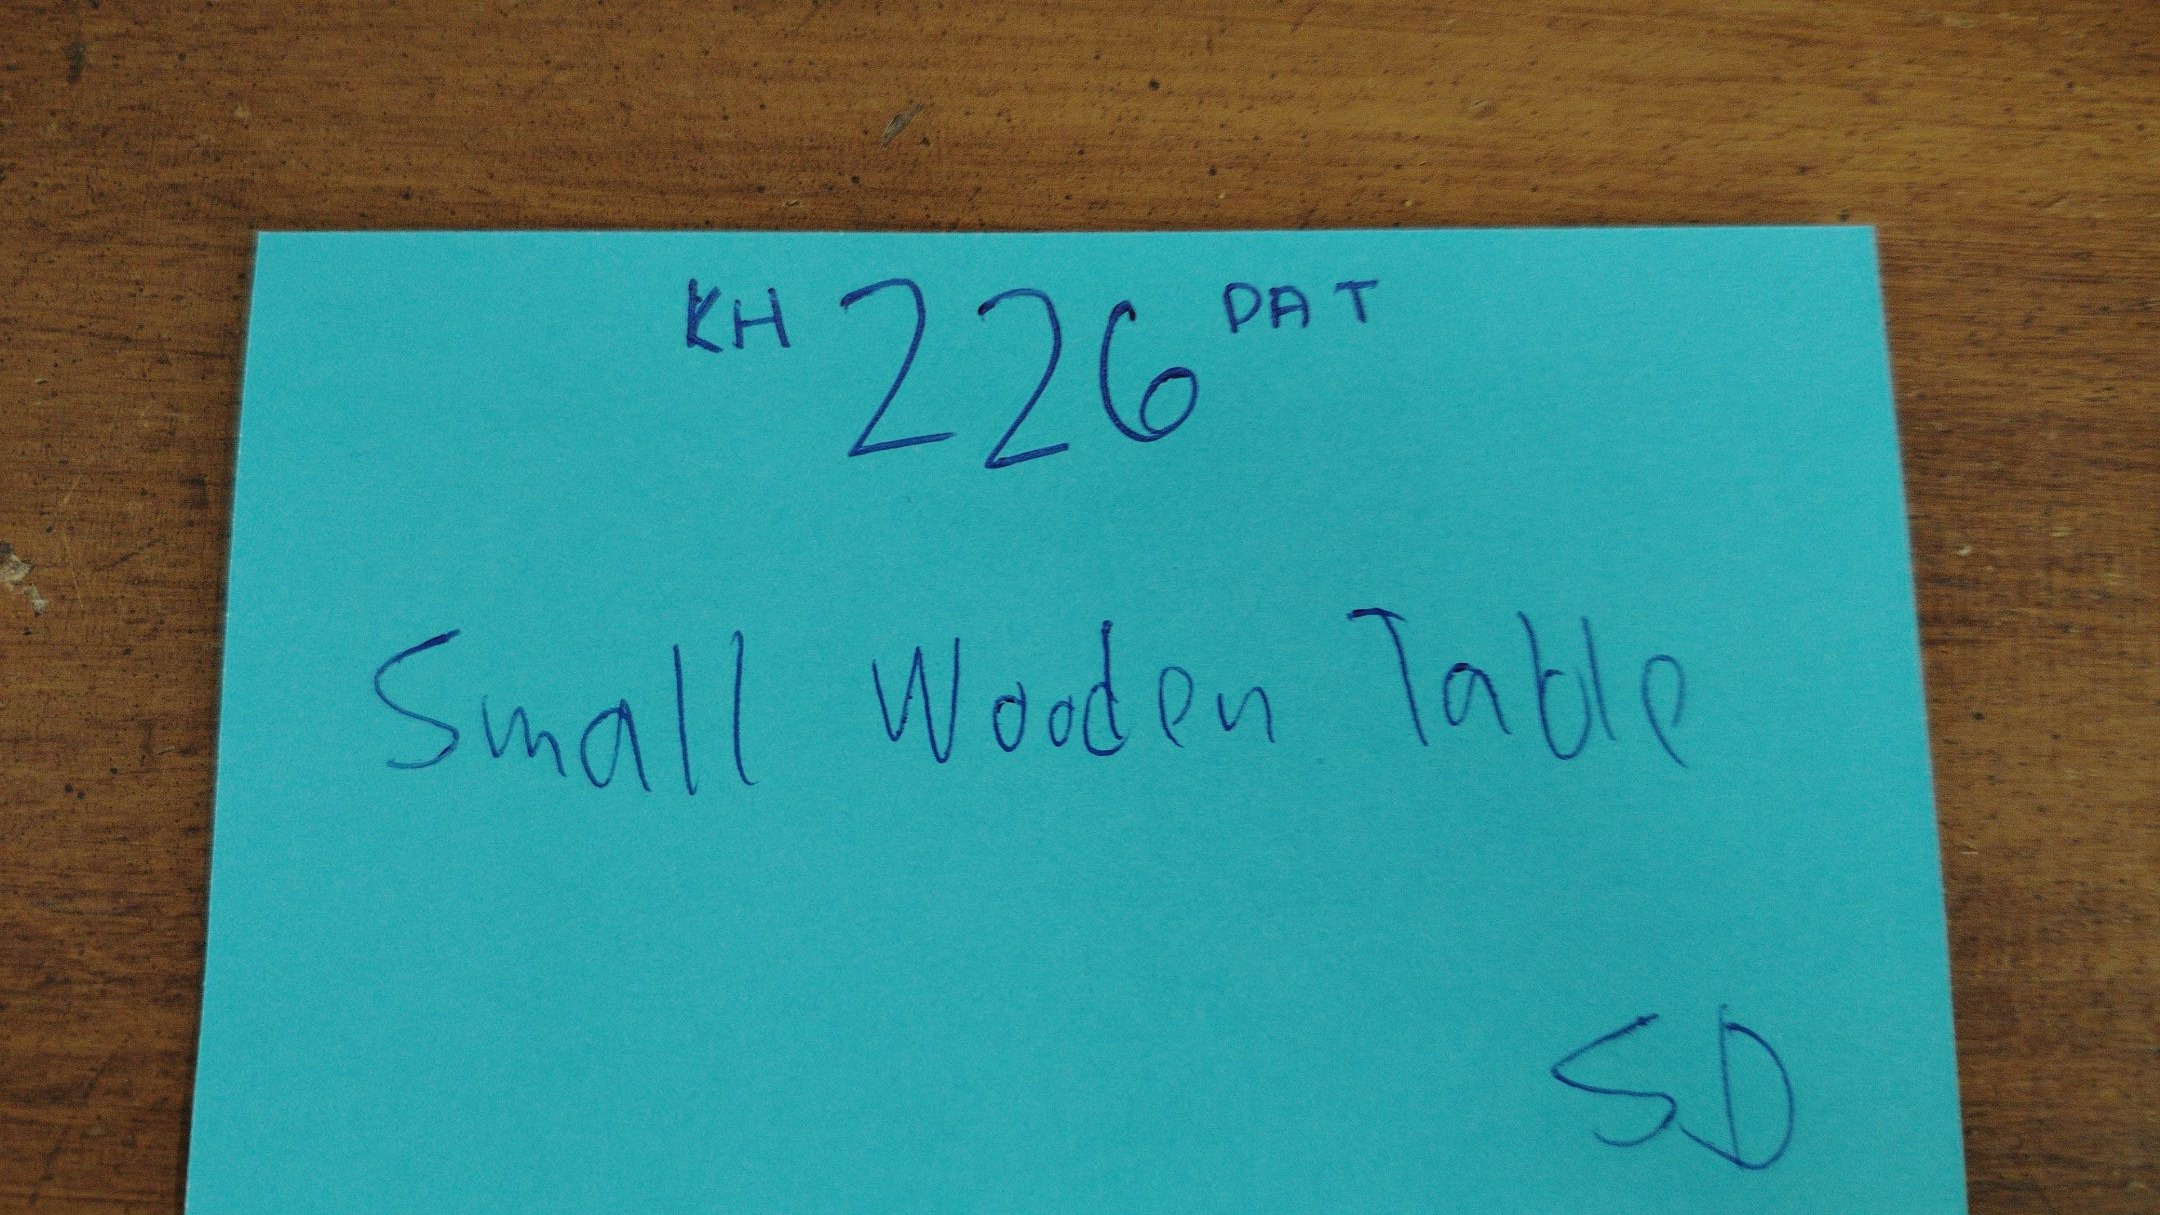 KH 226 DAT
Small Wooden Table
SD